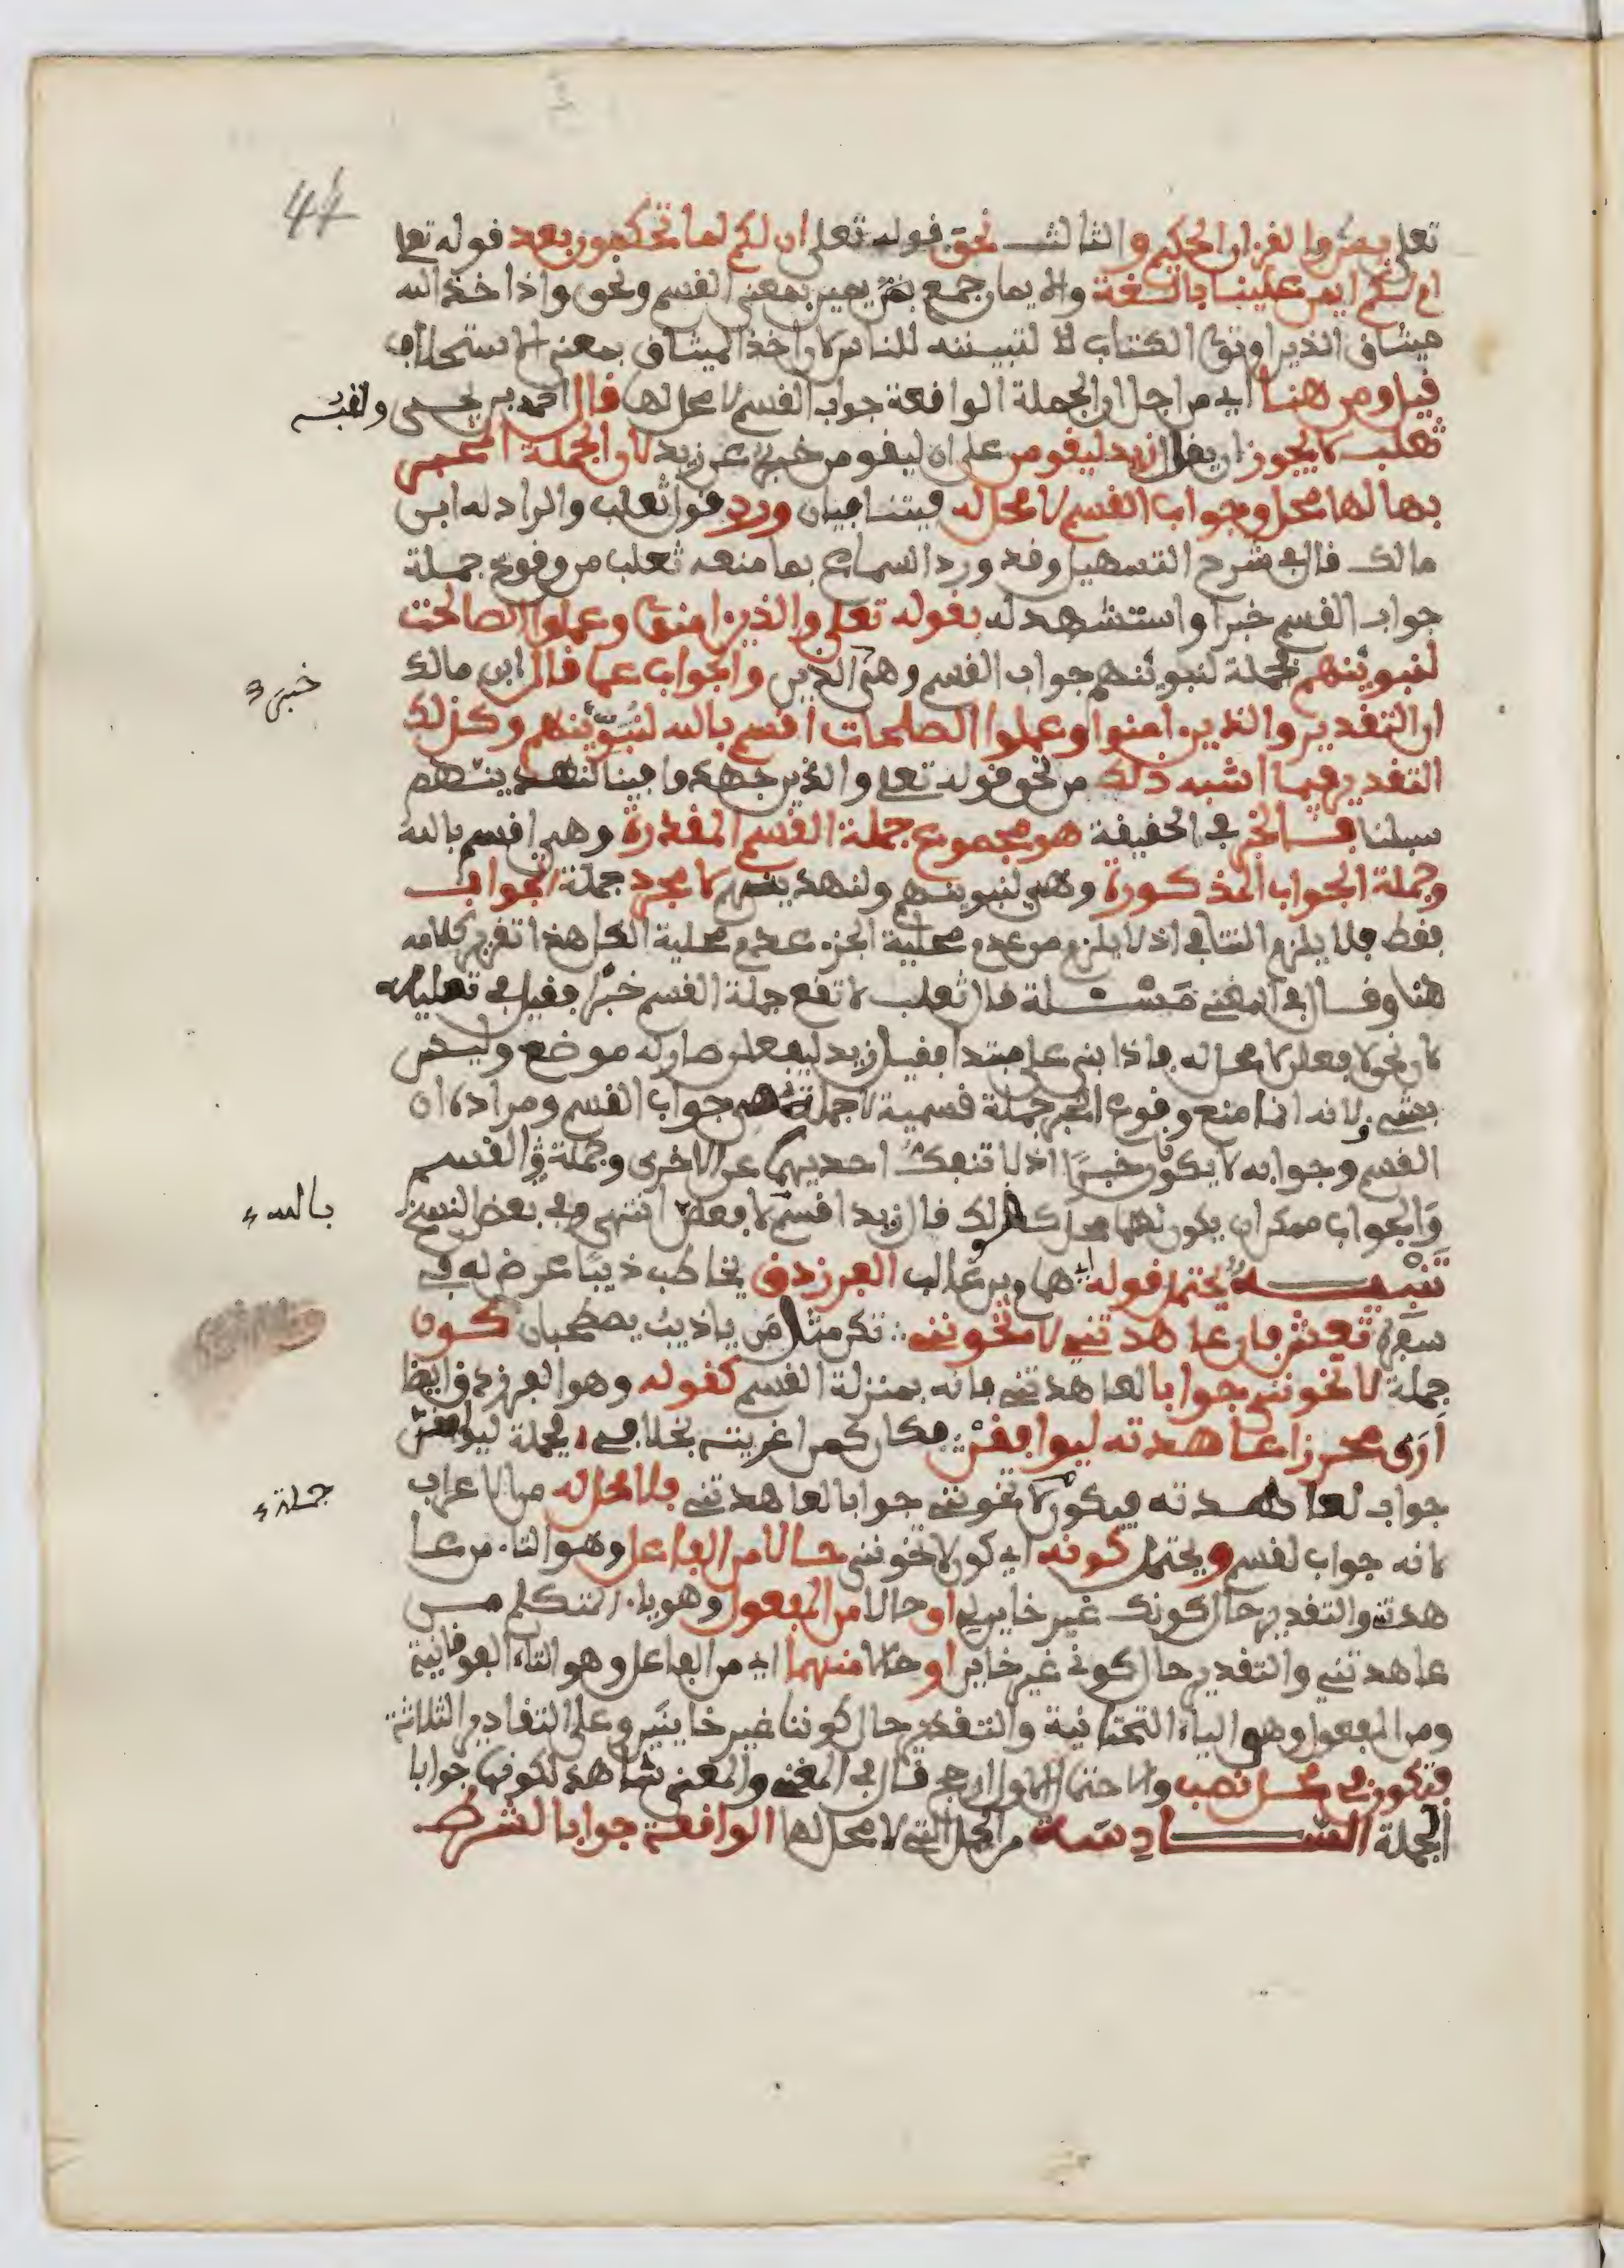 44
تعلى يس والقرءان الحكيم والثالث نحو قوله تعلى ان لكم لما تحكمون بعد قوله تعلى
ام لكم ايمن علينا بالغة والايمان جمع يمين بمعنى القسم ونحو واذ اخذ الله
ميثاق الذين اوتوا الكتاب لتبيننه للناس لان اخذ الميثاق بمعنى الاستحلاف
قيل ومن هنا اي من اجل ان الجملة الواقعة جواب القسم لا محل لها قال احمد بن يحيى ولقبه
ثعلب لا يجوز ان يقال زيد ليقومن على ان ليقومن خبر عن زيد لان الجملة المخبر
بها لها محل وجواب القسم لا محل له فيتنافيان ورد قول ثعلب والراد له ابن
مالك قال في شرح التسهيل وقد ورد السماع بما منعه ثعلب من وقوع جملة
جواب القسم خبرا واستشهد له بقوله تعلى والذين امنوا وعملوا الصالحت
لنبوئنهم فجملة لنبوئنهم جواب القسم وهي الذين والجواب عما قال ابن مالك
خبر
ان التقدير والذين امنوا وعملوا الصلحات اقسم بالله لنبوئنهم وكذلك
التقدير فيما اشبه ذلك من نحو قوله تعلى والذين جهدوا فينا لنهدينهم
سبلنا فالخبر في الحقيقة هو مجموع جملة القسم المقدرة وهي اقسم بالله
وجملة الجواب المذكورة وهي لنبوينهم ولنهدينهم لا مجرد جملة الجواب
فقط فلا يلزم التنافي اذ لا يلزم من عدم محلية الجزء عدم محلية الكل هذا تقرير كلامه
هنا وقال في المغني مسئلة قال ثعلب لا تقع جملة القسم خبرا فقيل في تعليله
لان نحو لافعلن لا محل له فاذا بني على مبتدا فقيل زيد ليفعلن صار له موضع وليس
بشيء لانه انما منع وقوع الخبر جملة قسمية لا جملة هي جواب القسم ومراده ان
القسم وجوابه لا يكونان خبرا اذ لا تنفك احديهما عن الاخرى وجملة القسم
والجواب ممكن ان يكون لهما محل كقولك قال زيد اقسم لافعلن انتهى وفي بعض النسخ
بالله
تنبيه يحتمل قوله اي همام بن غالب الفرزدق يخاطب ذيبا عرض له في
سفره تعش فان عاهدتني لا تخونني ∴ تكن مثل من ياذيب يصطحبان كون
جملة لا تخونني جوابا لعاهدتني فانه بمنزلة القسم كقوله وهو الفرزدق ايضا
ارى محرزا عاهدته ليوافقن ∴ فكان كمن اغريته بخلافي فجملة ليوافقن
جواب لعاهدته فيكون لا تخونني جوابا لعاهدتني فلا محل له من الاعراب
جملة
لانه جواب لقسم ويحتمل كونه اي كون لا تخونني حالا من الفاعل وهو التاء من عا
هدتني والتقدير حال كونك غير خاين لي او حالا من المفعول وهو ياء المتكلم من
عاهدتني والتقدير حال كوني غير خاين او حالا منهما اي من الفاعل وهو التاء الفوقانية
ومن المفعول وهو الياء التحتانية والتقدير حال كوننا غير خاينين وعلى التقادير الثلاثة
فتكون في محل نصب والاحتمال الاول ارجح قال في المغني والمعنى شاهد لكونها جوابا
الجملة السادسة من الجمل التي لا محل لها الواقعة جوابا لشرط